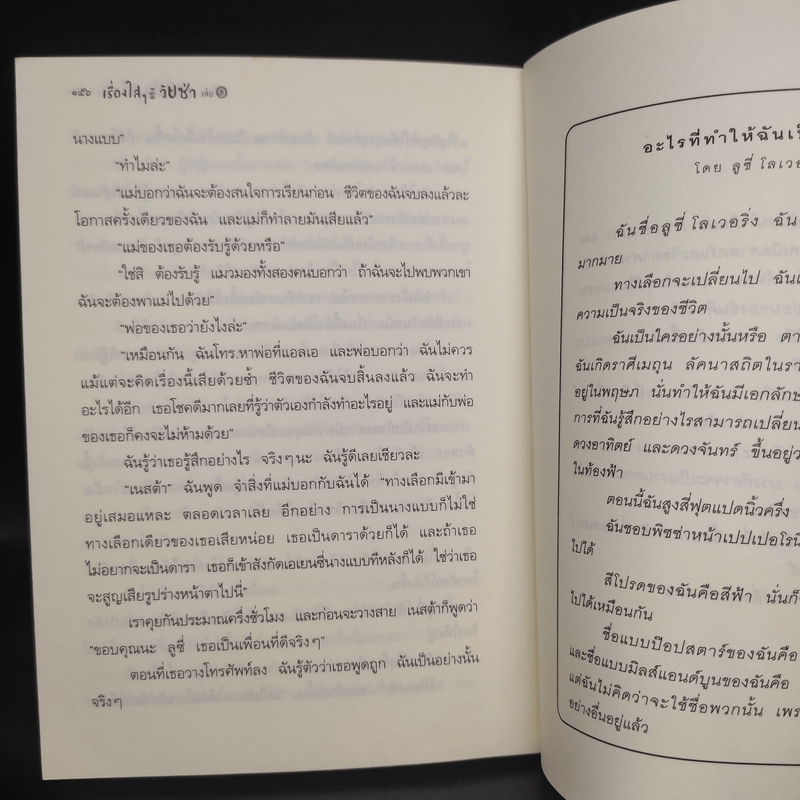 ๑๕๖ เรื่องใสๆ วัยซ่า เล่ม ๑
นางแบบ”
“ทำไมล่ะ”
“แม่บอกว่าฉันจะต้องสนใจการเรียนก่อน ชีวิตของฉันจบลงแล้วละ
โอกาสครั้งเดียวของฉัน และแม่ก็ทำลายมันเสียแล้ว”
“แม่ของเธอต้องรับรู้ด้วยหรือ”
“ใช่สิ ต้องรับรู้ แมวมองทั้งสองคนบอกว่า ถ้าฉันจะไปพบพวกเขา
ฉันจะต้องพาแม่ไปด้วย”
“พ่อของเธอว่ายังไงล่ะ”
“เหมือนกัน ฉันโทร.หาพ่อที่แอลเอ และพ่อบอกว่า ฉันไม่ควร
แม้แต่จะคิดเรื่องนี้เสียด้วยซ้ำ ชีวิตของฉันจบสิ้นลงแล้ว ฉันจะทำ
อะไรได้อีก เธอโชคดีมากเลยที่รู้ว่าตัวเองกำลังทำอะไรอยู่ และแม่กับพ่อ
ของเธอก็คงจะไม่ห้ามด้วย”
ฉันรู้ว่าเธอรู้สึกอย่างไร จริงๆนะ ฉันรู้ดีเลยเชียวละ
“เนสต้า” ฉันพูด จำสิ่งที่แม่บอกกับฉันได้ “ทางเลือกมีเข้ามา
อยู่เสมอแหละ ตลอดเวลาเลย อีกอย่าง การเป็นนางแบบก็ไม่ใช่
ทางเลือกเดียวของเธอเสียหน่อย เธอเป็นดาราด้วยก็ได้ และถ้าเธอ
ไม่อยากจะเป็นดารา เธอก็เข้าสังกัดเอเยนซี่นางแบบทีหลังก็ได้ ใช่ว่าเธอ
จะสูญเสียรูปร่างหน้าตาไปนี่”
เราคุยกันประมาณครึ่งชั่วโมง และก่อนจะวางสาย เนสต้าก็พูดว่า
“ขอบคุณนะ ลูซี่ เธอเป็นเพื่อนที่ดีจริงๆ”
ตอนที่เธอวางโทรศัพท์ลง ฉันรู้ตัวว่าเธอพูดถูก ฉันเป็นอย่างนั้น
จริงๆ
อะไรที่ทำให้ฉัน
โดย ลูซี่
ฉันชื่อลูซี่ โลเวอริ่ง ฉัน
มากมาย
ทางเลือกจะเปลี่ยนไป
ความเป็นจริงของชีวิต
ฉันเป็นใครอย่างนั้นหรือ
ฉันเกิดราศีเมถุน ลัคนาสถิตใน
อยู่ในพฤษภ นั่นทำให้ฉันมี
การที่ฉันรู้สึกอย่างไรสามารถเปลี่ยน
ดวงอาทิตย์ และดวงจันทร์ ขึ้นอยู่
ในท้องฟ้า
ตอนนี้ฉันสูงสี่ฟุตแปดนิ้วครึ่ง
ฉันชอบพิซซ่าหน้า
ไปได้
สีโปรดของฉันคือสีฟ้า
ไปได้เหมือนกัน
ชื่อแบบป๊อปสตาร์ของฉันคือ
และชื่อแบบมิลส์แอนด์บูนของฉันคือ
แต่ฉันไม่คิดว่าจะใช้ชื่อพวกนั้น
อย่างอื่นอยู่แล้ว